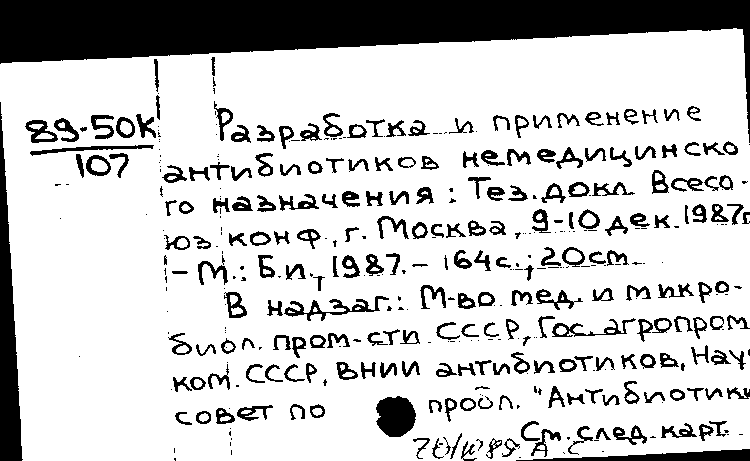 89-50К
107
Разработка и применение
антибиотиков немедицинско
го назначения: Тез. докл. Всесо-
юз. конф., г. Москва, 9-10 дек. 1987г.
- М.: Б.и., 1987. - 164с.; 20см.
В надзаг.: М-во мед. и микро-
биол. пром-сти СССР, Гос. агропром.
ком. СССР, ВНИИ антибиотиков, Науч
совет по пробл. "Антибиотики
См. след. карт.